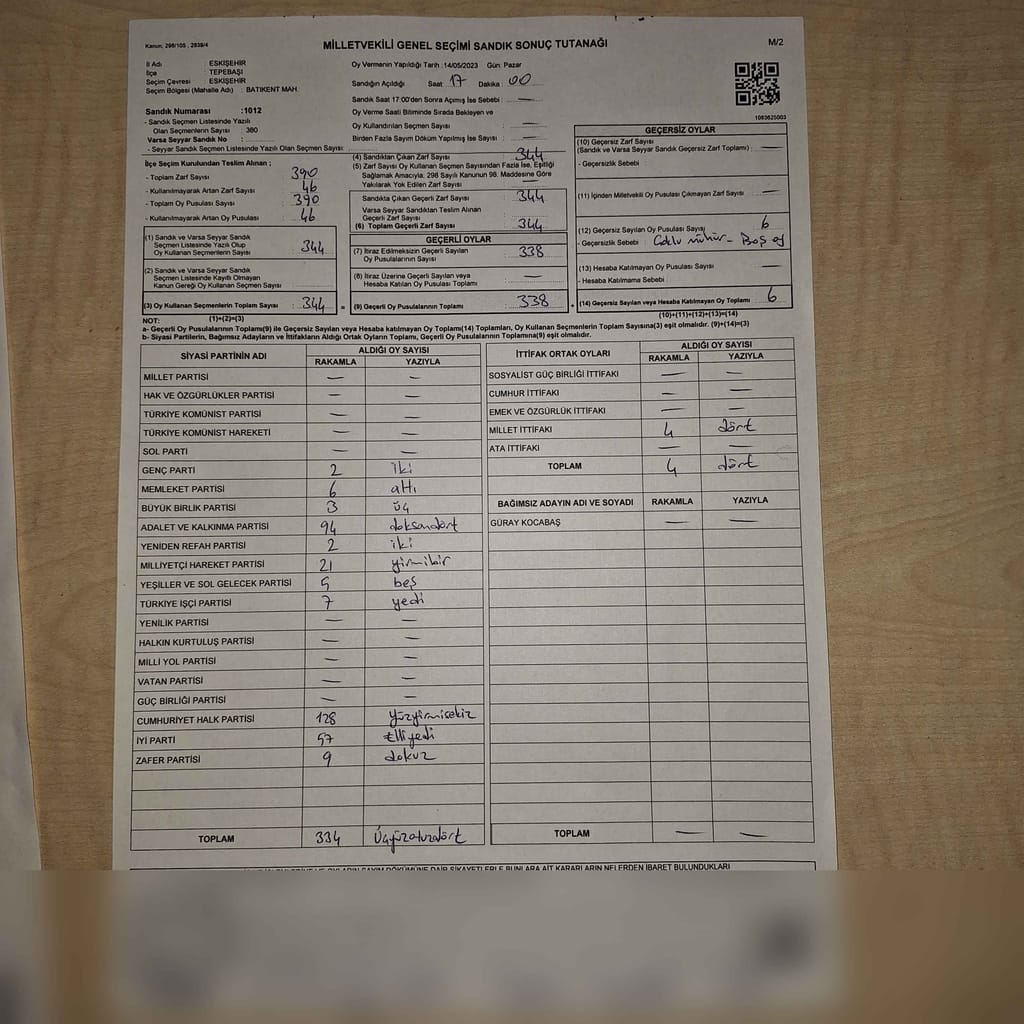 Kanun, 298/105 , 2839/4
MİLLETVEKİLİ GENEL SEÇİMİ SANDIK SONUÇ TUTANAĞI
M/2
İl Adı : ESKİŞEHİR
İlçe : TEPEBAŞI
Seçim Çevresi : ESKİŞEHİR
Seçim Bölgesi (Mahalle Adı) : BATIKENT MAH.
Oy Vermenin Yapıldığı Tarih :14/05/2023 Gün: Pazar
Sandığın Açıldığı Saat : 17 Dakika : 00
Sandık Saat 17:00'den Sonra Açımış İse Sebebi : —
Oy Verme Saati Bitiminde Sırada Bekleyen ve
Oy Kullandırılan Seçmen Sayısı : —
Birden Fazla Sayım Döküm Yapılmış İse Sayısı : —
1083625003
Sandık Numarası :1012
- Sandık Seçmen Listesinde Yazılı
Olan Seçmenlerin Sayısı : 380
Varsa Seyyar Sandık No :
- Seyyar Sandık Seçmen Listesinde Yazılı Olan Seçmen Sayısı:
İlçe Seçim Kurulundan Teslim Alınan ;
- Toplam Zarf Sayısı : 390
- Kullanılmayarak Artan Zarf Sayısı : 46
- Toplam Oy Pusulası Sayısı : 390
- Kullanılmayarak Artan Oy Pusulası : 46
(1) Sandık ve Varsa Seyyar Sandık
Seçmen Listesinde Yazılı Olup
Oy Kullanan Seçmenlerin Sayısı : 344
(2) Sandık ve Varsa Seyyar Sandık
Seçmen Listesinde Kayıtlı Olmayan
Kanun Gereği Oy Kullanan Seçmen Sayısı :
(3) Oy Kullanan Seçmenlerin Toplam Sayısı : 344
(1)+(2)=(3)
(4) Sandıktan Çıkan Zarf Sayısı : 344
(5) Zarf Sayısı Oy Kullanan Seçmen Sayısından Fazla İse, Eşitliği
Sağlamak Amacıyla, 298 Sayılı Kanunun 98. Maddesine Göre
Yakılarak Yok Edilen Zarf Sayısı : —
Sandıkta Çıkan Geçerli Zarf Sayısı : 344
Varsa Seyyar Sandıktan Teslim Alınan
Geçerli Zarf Sayısı : —
(6) Toplam Geçerli Zarf Sayısı : 344
GEÇERLİ OYLAR
(7) İtiraz Edilmeksizin Geçerli Sayılan
Oy Pusulalarının Sayısı : 338
(8) İtiraz Üzerine Geçerli Sayılan veya
Hesaba Katılan Oy Pusulaları Toplamı : —
= (9) Geçerli Oy Pusulalarının Toplamı : 338
GEÇERSİZ OYLAR
(10) Geçersiz Zarf Sayısı
(Sandık ve Varsa Seyyar Sandık Geçersiz Zarf Toplamı) : —
- Geçersizlik Sebebi :
(11) İçinden Milletvekili Oy Pusulası Çıkmayan Zarf Sayısı : —
(12) Geçersiz Sayılan Oy Pusulası Sayısı : 6
- Geçersizlik Sebebi : Çoklu mühür - Boş oy
(13) Hesaba Katılmayan Oy Pusulası Sayısı : —
- Hesaba Katılmama Sebebi :
+ (14) Geçersiz Sayılan veya Hesaba Katılmayan Oy Toplamı : 6
(10)+(11)+(12)+(13)=(14)
NOT:
a- Geçerli Oy Pusulalarının Toplamı(9) ile Geçersiz Sayılan veya Hesaba katılmayan Oy Toplamı(14) Toplamları, Oy Kullanan Seçmenlerin Toplam Sayısına(3) eşit olmalıdır. (9)+(14)=(3)
b- Siyasi Partilerin, Bağımsız Adayların ve İttifakların Aldığı Ortak Oyların Toplamı, Geçerli Oy Pusulalarının Toplamına(9) eşit olmalıdır.
SİYASİ PARTİNİN ADI ALDIĞI OY SAYISI
RAKAMLA YAZIYLA
MİLLET PARTİSİ — —
HAK VE ÖZGÜRLÜKLER PARTİSİ — —
TÜRKİYE KOMÜNİST PARTİSİ — —
TÜRKİYE KOMÜNİST HAREKETİ — —
SOL PARTİ — —
GENÇ PARTİ 2 iki
MEMLEKET PARTİSİ 6 altı
BÜYÜK BİRLİK PARTİSİ 3 üç
ADALET VE KALKINMA PARTİSİ 94 doksandört
YENİDEN REFAH PARTİSİ 2 iki
MİLLİYETÇİ HAREKET PARTİSİ 21 yirmibir
YEŞİLLER VE SOL GELECEK PARTİSİ 5 beş
TÜRKİYE İŞÇİ PARTİSİ 7 yedi
YENİLİK PARTİSİ — —
HALKIN KURTULUŞ PARTİSİ — —
MİLLİ YOL PARTİSİ — —
VATAN PARTİSİ — —
GÜÇ BİRLİĞİ PARTİSİ — —
CUMHURİYET HALK PARTİSİ 128 yüzyirmisekiz
İYİ PARTİ 57 Elliyedi
ZAFER PARTİSİ 9 dokuz
TOPLAM 334 Üçyüzotuzdört
İTTİFAK ORTAK OYLARI ALDIĞI OY SAYISI
RAKAMLA YAZIYLA
SOSYALİST GÜÇ BİRLİĞİ İTTİFAKI — —
CUMHUR İTTİFAKI — —
EMEK VE ÖZGÜRLÜK İTTİFAKI — —
MİLLET İTTİFAKI 4 dört
ATA İTTİFAKI — —
TOPLAM 4 dört
BAĞIMSIZ ADAYIN ADI VE SOYADI RAKAMLA YAZIYLA
GÜRAY KOCABAŞ — —
TOPLAM — —